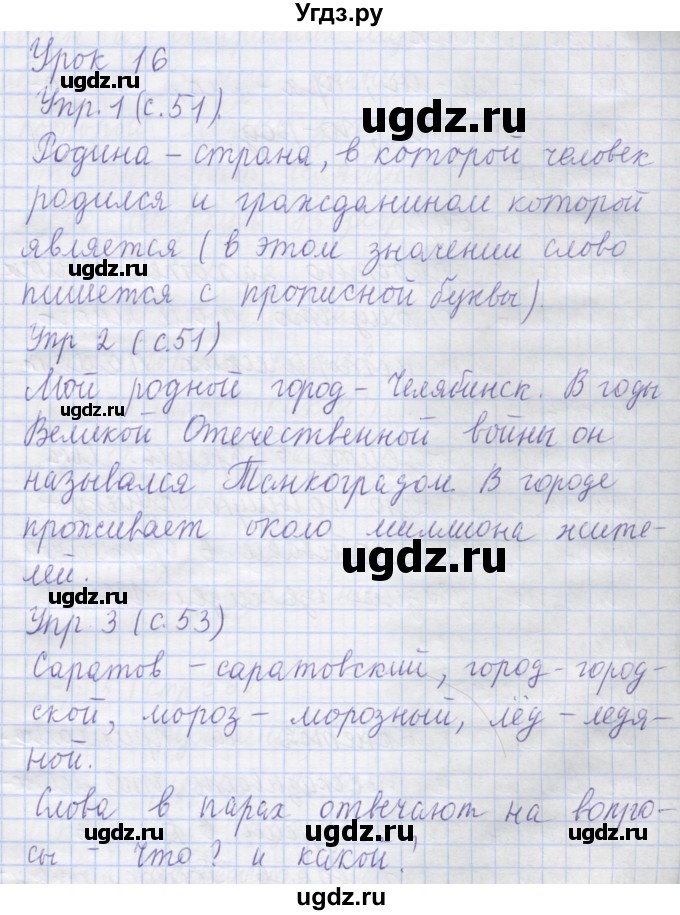 Угдз.ру
Урок 16
ugdz.ru
Упр. 1 (с. 51).
ugdz.ru
Родина – страна, в которой человек
родился и гражданином которой
является (в этом значении слово
ugdz.ru
пишется с прописной буквы).
Упр 2 (с. 51)
ugdz.ru
Мой родной город – Челябинск. В годы
ugdz.ru
Великой Отечественной войны он
назывался Танкоградом. В городе
проживает около миллиона жите-
ugdz.ru
лей.
ugdz.ru
Упр 3 (с. 53)
Саратов – саратовский, город – город-
ской, мороз – морозный, лёд – ледя-
ugdz.ru
ной.
Слова в парах отвечают на вопро-
ugdz.ru
ugdz.ru
сы – что? и какой?
ugdz.ru
ugdz.ru